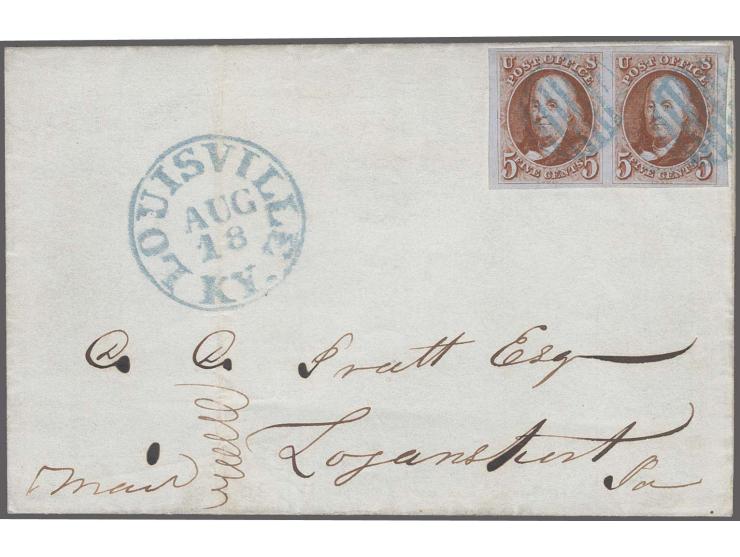 U S U S
POST OFFICE POST OFFICE
5 FIVE CENTS 5 5 FIVE CENTS 5
LOUISVILLE
AUG
18
KY.
Pratt Esq
Logansport
Ia
Mail